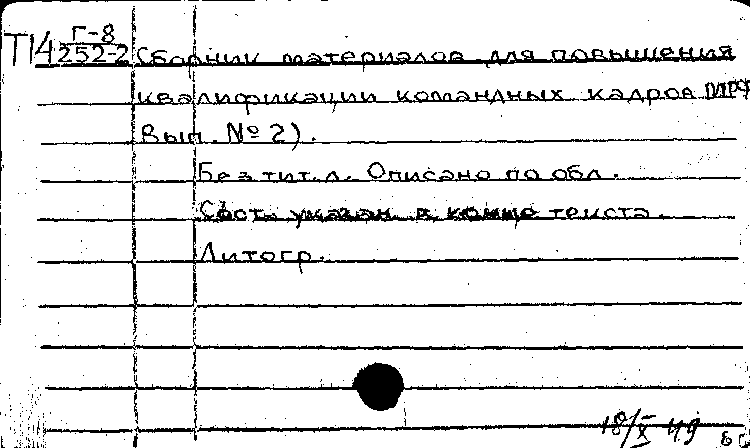 Т14 Г-8
252-2 Сборник материалов для повышения
квалификации командных кадров МРФ
Вып. № 2).
Без тит. л. Описано по обл.
Сост. указан. в конце текста.
Литогр.
18/X 49